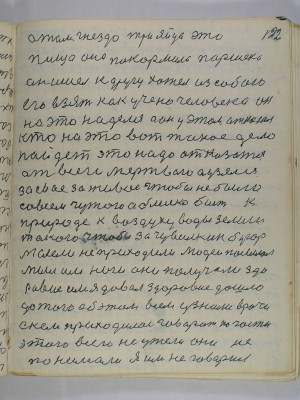 122
это
пища она покормила паршека
он шел к другу хотел из собою
его взять как учено человека он
на это надел а он у этом отказал
кто на это вот такое дело
пойдет это надо отказатся
от всего мертвого а взялся
за свае за живое чтобы не было
совсем чужого а близко быт к
природе к воздуху воды земли
такого чтобы за чувалкин бугор
малем не приходили люди
мыли им ноги они получали здо
ровие им я давал здоровие дошло
до того об этом всем узнали врачи
с кем приходилос говорит по части
этого всего не ужели они не
понимали я им не говорил